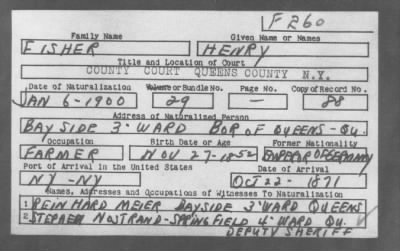 F260
Family Name Given Name or Names
FISHER HENRY
Title and Location of Court
COUNTY COURT QUEENS COUNTY N.Y.
Date of Naturalization Volume or Bundle No. Page No. Copy of Record No.
JAN 6-1900 29 — 88
Address of Naturalized Person
BAYSIDE 3" WARD BOR OF QUEENS-QU.
Occupation Birth Date or Age Former Nationality
FARMER NOV 27-1852 EMPEROR OF GERMANY
Port of Arrival in the United States Date of Arrival
NY-NY OCT 22-1871
Names, Addresses and Occupations of Witnesses To Naturalization
1 REINHARD MEIER BAYSIDE 3" WARD QUEENS
2 STEPHEN NOSTRAND-SPRINGFIELD 4" WARD QU.
DEPUTY SHERIFF